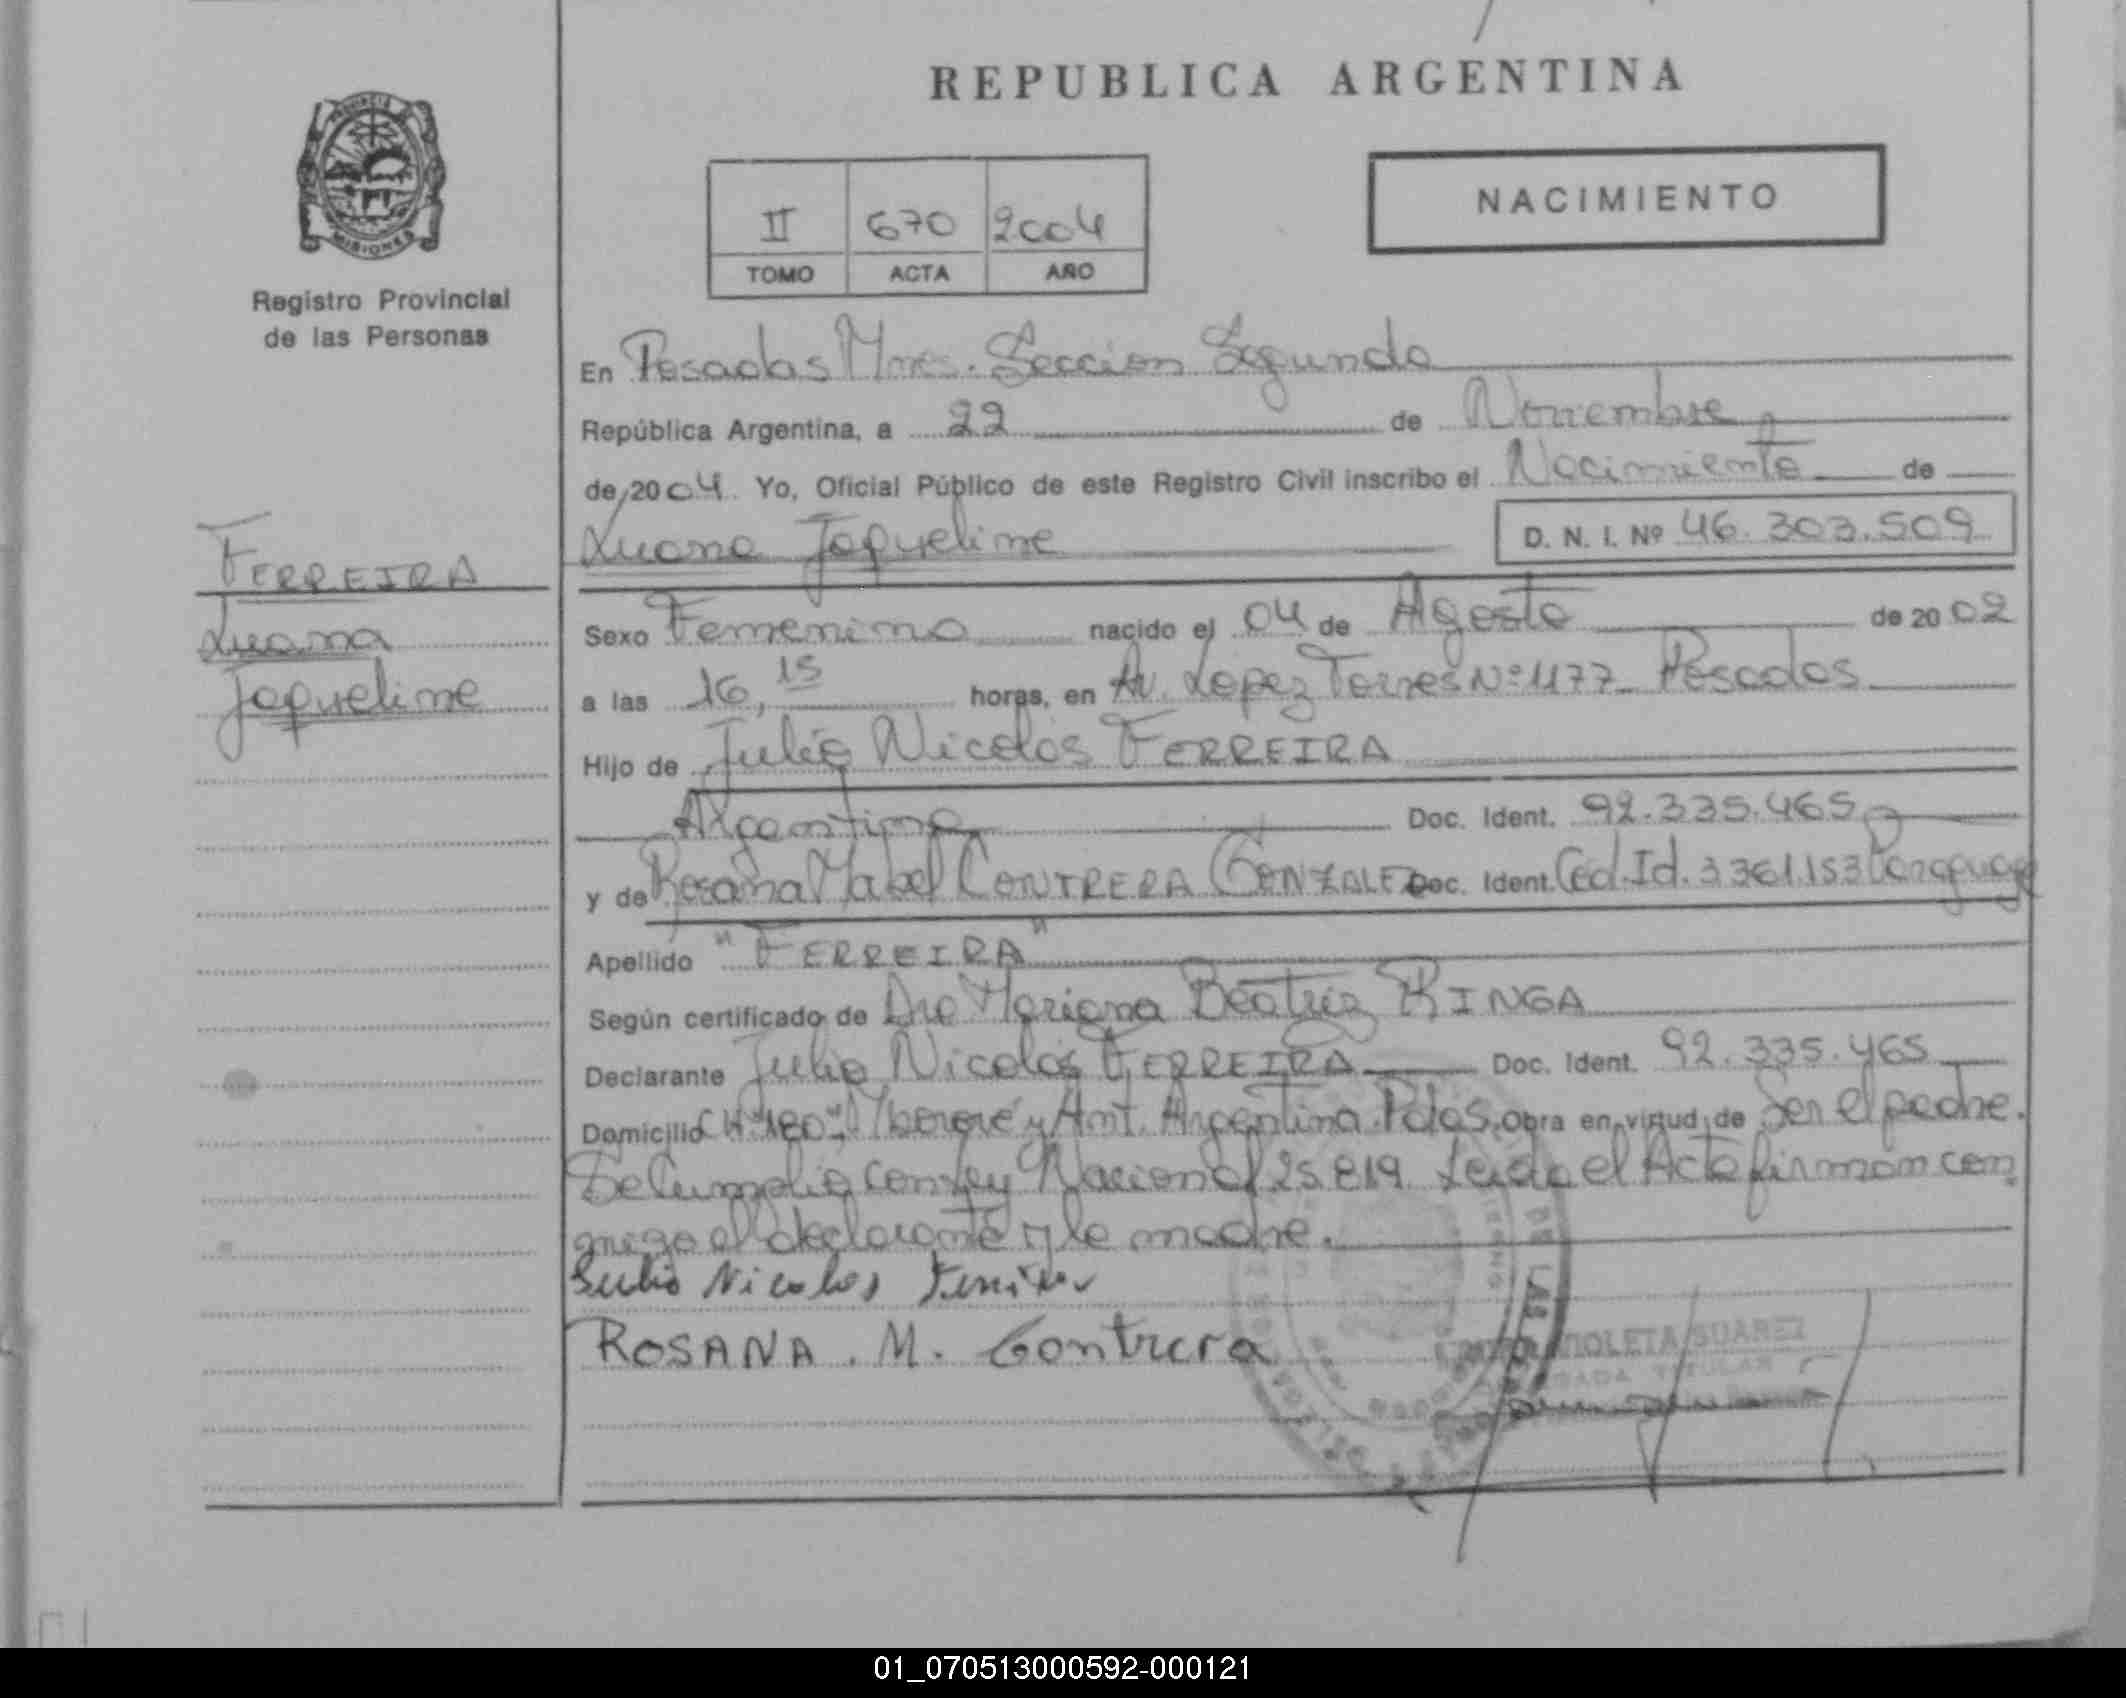 REPUBLICA ARGENTINA
PROVINCIA DE MISIONES
Registro Provincial
de las Personas
II 670 2004
TOMO ACTA AÑO
NACIMIENTO
En Posadas Mnes. Seccion Segunda
República Argentina, a 22 de Noviembre
de 2004. Yo, Oficial Público de este Registro Civil inscribo el Nacimiento de
Luana Jaqueline D. N. I. Nº 46.303.509
FERREIRA
Luana
Jaqueline
Sexo Femenino nacido el 04 de Agosto de 2002
a las 16,15 horas, en Av. Lopez Torres Nº 1177 Posadas
Hijo de Julio Nicolas FERREIRA
Argentino Doc. Ident. 92.335.465
y de Rosana Mabel CONTRERA GONZALEZ Doc. Ident. Ced. Id. 3361.153 Paraguaya
Apellido "FERREIRA"
Según certificado de Dra Mariana Beatriz KINGA
Declarante Julio Nicolás FERREIRA Doc. Ident. 92.335.465
Domicilio CH "180" Mbororé y Ant. Argentina. Pdas. Obra en virtud de Ser el padre.
Se Cumplió con Ley Nacional 25.819. Leida el Acta firman con
migo el declarante y la madre.
Julio Nicolas Ferreira
ROSANA . M. Contrera
VIOLETA SUAREZ
TITULAR
01_070513000592-000121